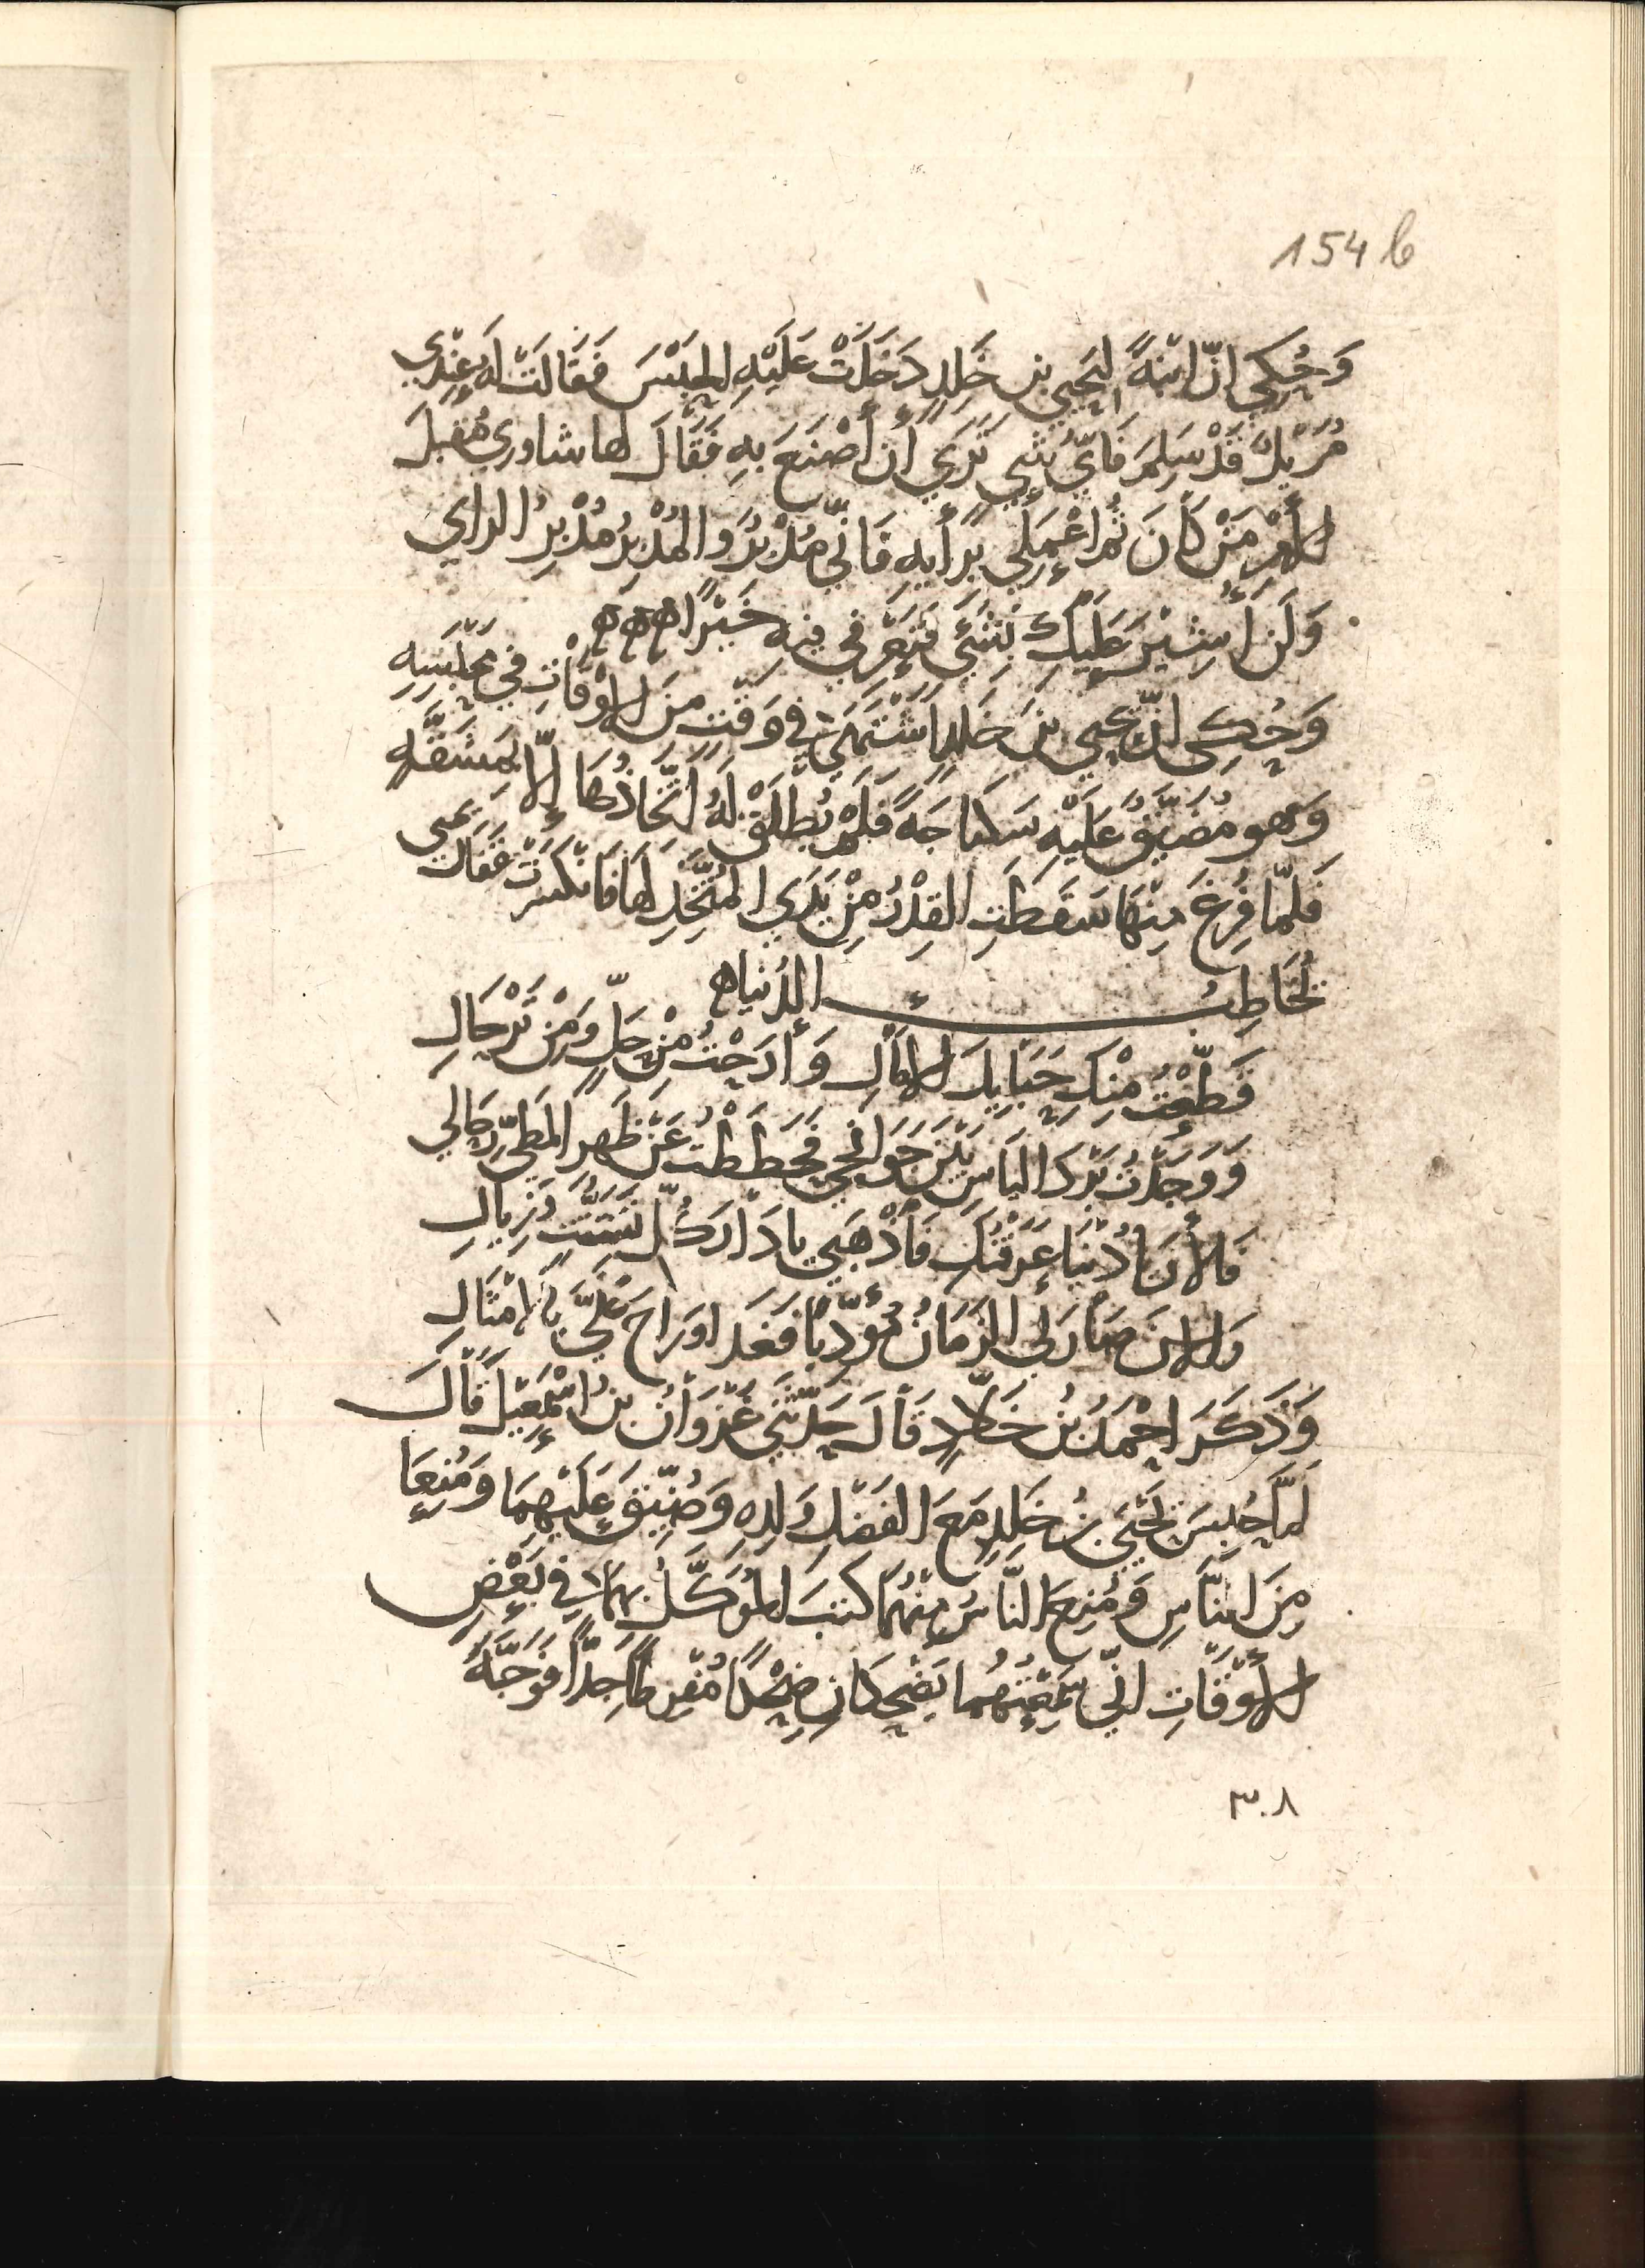 154 b
وَحُكِي انّ ابْنَةً لِيَحيي بن خَلِدٍ دَخَلَتْ عَلَيْهِ الحَبْسَ فَقَالَتْ لَهُ عِنْدِي
قَدْ سَلِمَ فَايَّ شيٍ تَرَي أَن أَصْنَعَ بِهِ فَقَالَ لها شاوري مُقْبِلَ
الأَمْرِ مَنْ كَانَ ثُمّ اعْمَلِي بِرَأْيِهِ فَانّي مُدْبِرٌ وَالمُدْبِرُ مُدْبِرُ الراي
وَلَن أُشِيْرَ عَلَيكِ بِشَيْءٍ فَتَعْرِفي فِيهِ خَيْرًا ه ه ه
وَحُكِي انّ يحيي بنَ خَلِدٍ اشْتَهَي في وَقْتٍ مِنَ الاوْقَاتِ في مَحْبَسِهِ
وَهو مُضَيَّقٌ عَلَيْهِ سَكبَاجَةً فَلَمْ يُطْلَقْ لَهُ اتّخَاذُهَا إلّا بِمَشَقّهٍ
فَلَمّا فُرِغَ مِنْهَا سَقَطَتِ القِدْرُ مِنْ يَدَيِ المُتَّخِذِ لهَا فَانْكَسَرَتْ فَقَالَ يحيي
يُخَاطِبُ الدُنْيَا ه
قَطّعْتُ مِنْكِ حَبَايِلَ الامَالِ وَأَرَحْتُ مِنْ حَلٍّ وَمِنْ تَرْحَالِ
وَوَجَدْتُ بَرْدَ اليَاسِ بَيْنَ جَوَانحِي فَحَطَطْتُ عَنْ ظَهرِ المَطِيِّ رِحَالِي
فَالأَنَ يَا دُنْيَا عَرَفْتُكِ فَاذْهَبِي يا دَارَ كُلِّ تَشَتُّتٍ وَزِيالِ
وَالانَ صَارَ لِي الزَمَانُ مُؤَدِّبًا فَغَدا وَرَاحَ عَلَيَّ بِالامْثَالِ
وَذَكَرَ احْمَدُ بْنُ خَلّادٍ قَالَ حَدّثَنِي غَزْوَانُ بنُ اسْمَعِيْلَ قَالَ
لمّا حُبِسَ يَحْيَي بنُ خَلِدٍ مَعَ الفَضْلِ وَلَدِهِ وَضُيّقَ عَلَيْهِمَا وَمُنِعَا
مِنَ النَّاسِ وَمُنِعَ النَّاسُ مِنْهُمَا كتبَ المُوَكَّلُ بِهمَا في بَعْضِ
الأَوْقَاتِ انّي سَمِعْتُهُما يَضْحَكَانِ ضِحْكًا مُفْرِطًا جِدًّا فَوَجّهَ
٣٠٨